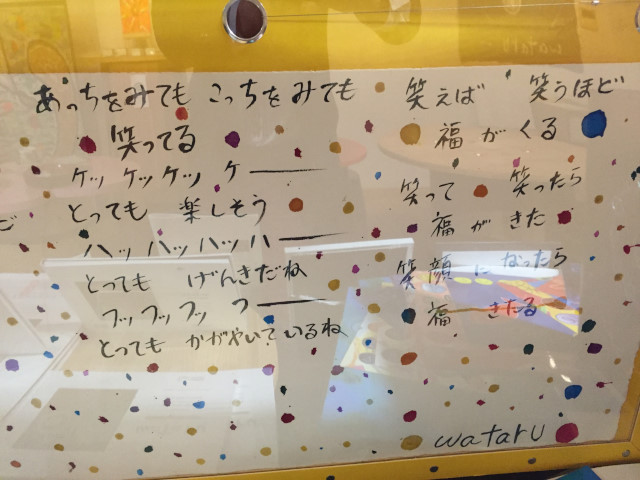 あっちをみても こっちをみても
笑ってる
ケッ ケッケッ ケー
とっても 楽しそう
ハッ ハッハッハー
とっても げんきだね
フッフッフッ フー
とっても かがやいているね
笑えば 笑うほど
福がくる
笑って 笑ったら
福がきた
笑顔になったら
福 きたる
wataru